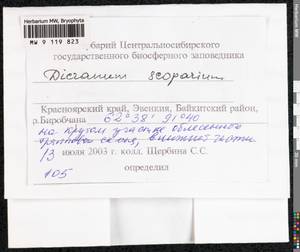 Herbarium MW, Bryophyta
MW 9 119 823
барий Центральносибирского
государственного биосферного заповедника
Dicranum scoparium
Красноярский край, Эвенкия, Байкитский район,
р.Биробчана 62°38' 91°40
на крутом участке облесенного
склона,
13 июля 2003 г. колл. Щербина С.С.
определил
105